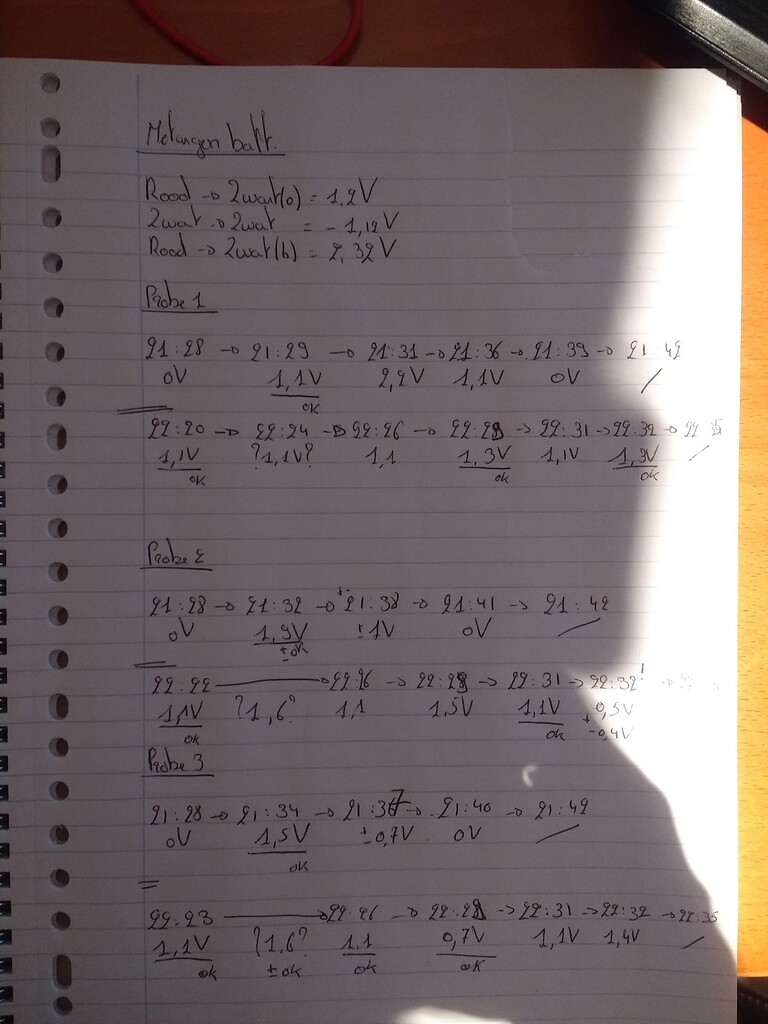 Metingen batt.
Rood → Zwart(o) = 1.2V
Zwart → Zwart = -1,12V
Rood → Zwart(b) = 2,32V
Probe 1
21:28 → 21:29 → 21:31 → 21:36 → 21:39 → 21:42
0V 1,1V 2,2V 1,1V 0V /
ok
22:20 → 22:24 → 22:26 → 22:28 → 22:31 → 22:32 → 22:35
1,1V ?1,1V? 1,1 1,3V 1,1V 1,3V /
ok ok ok
Probe 2
21:28 → 21:32 → 21:38 → 21:41 → 21:42
0V 1,9V ±1V 0V /
±ok
22:22 → 22:26 → 22:28 → 22:31 → 22:32!
1,1V ?1,6? 1,1 1,5V 1,1V ± 0,5V
ok ok -0,4V
Probe 3
21:28 → 21:34 → 21:37 → 21:40 → 21:42
0V 1,5V ±0,7V 0V /
ok
22:23 → 22:26 → 22:28 → 22:31 → 22:32 → 22:35
1,1V ?1,6? 1.1 0,7V 1,1V 1,4V /
ok ±ok ok ok